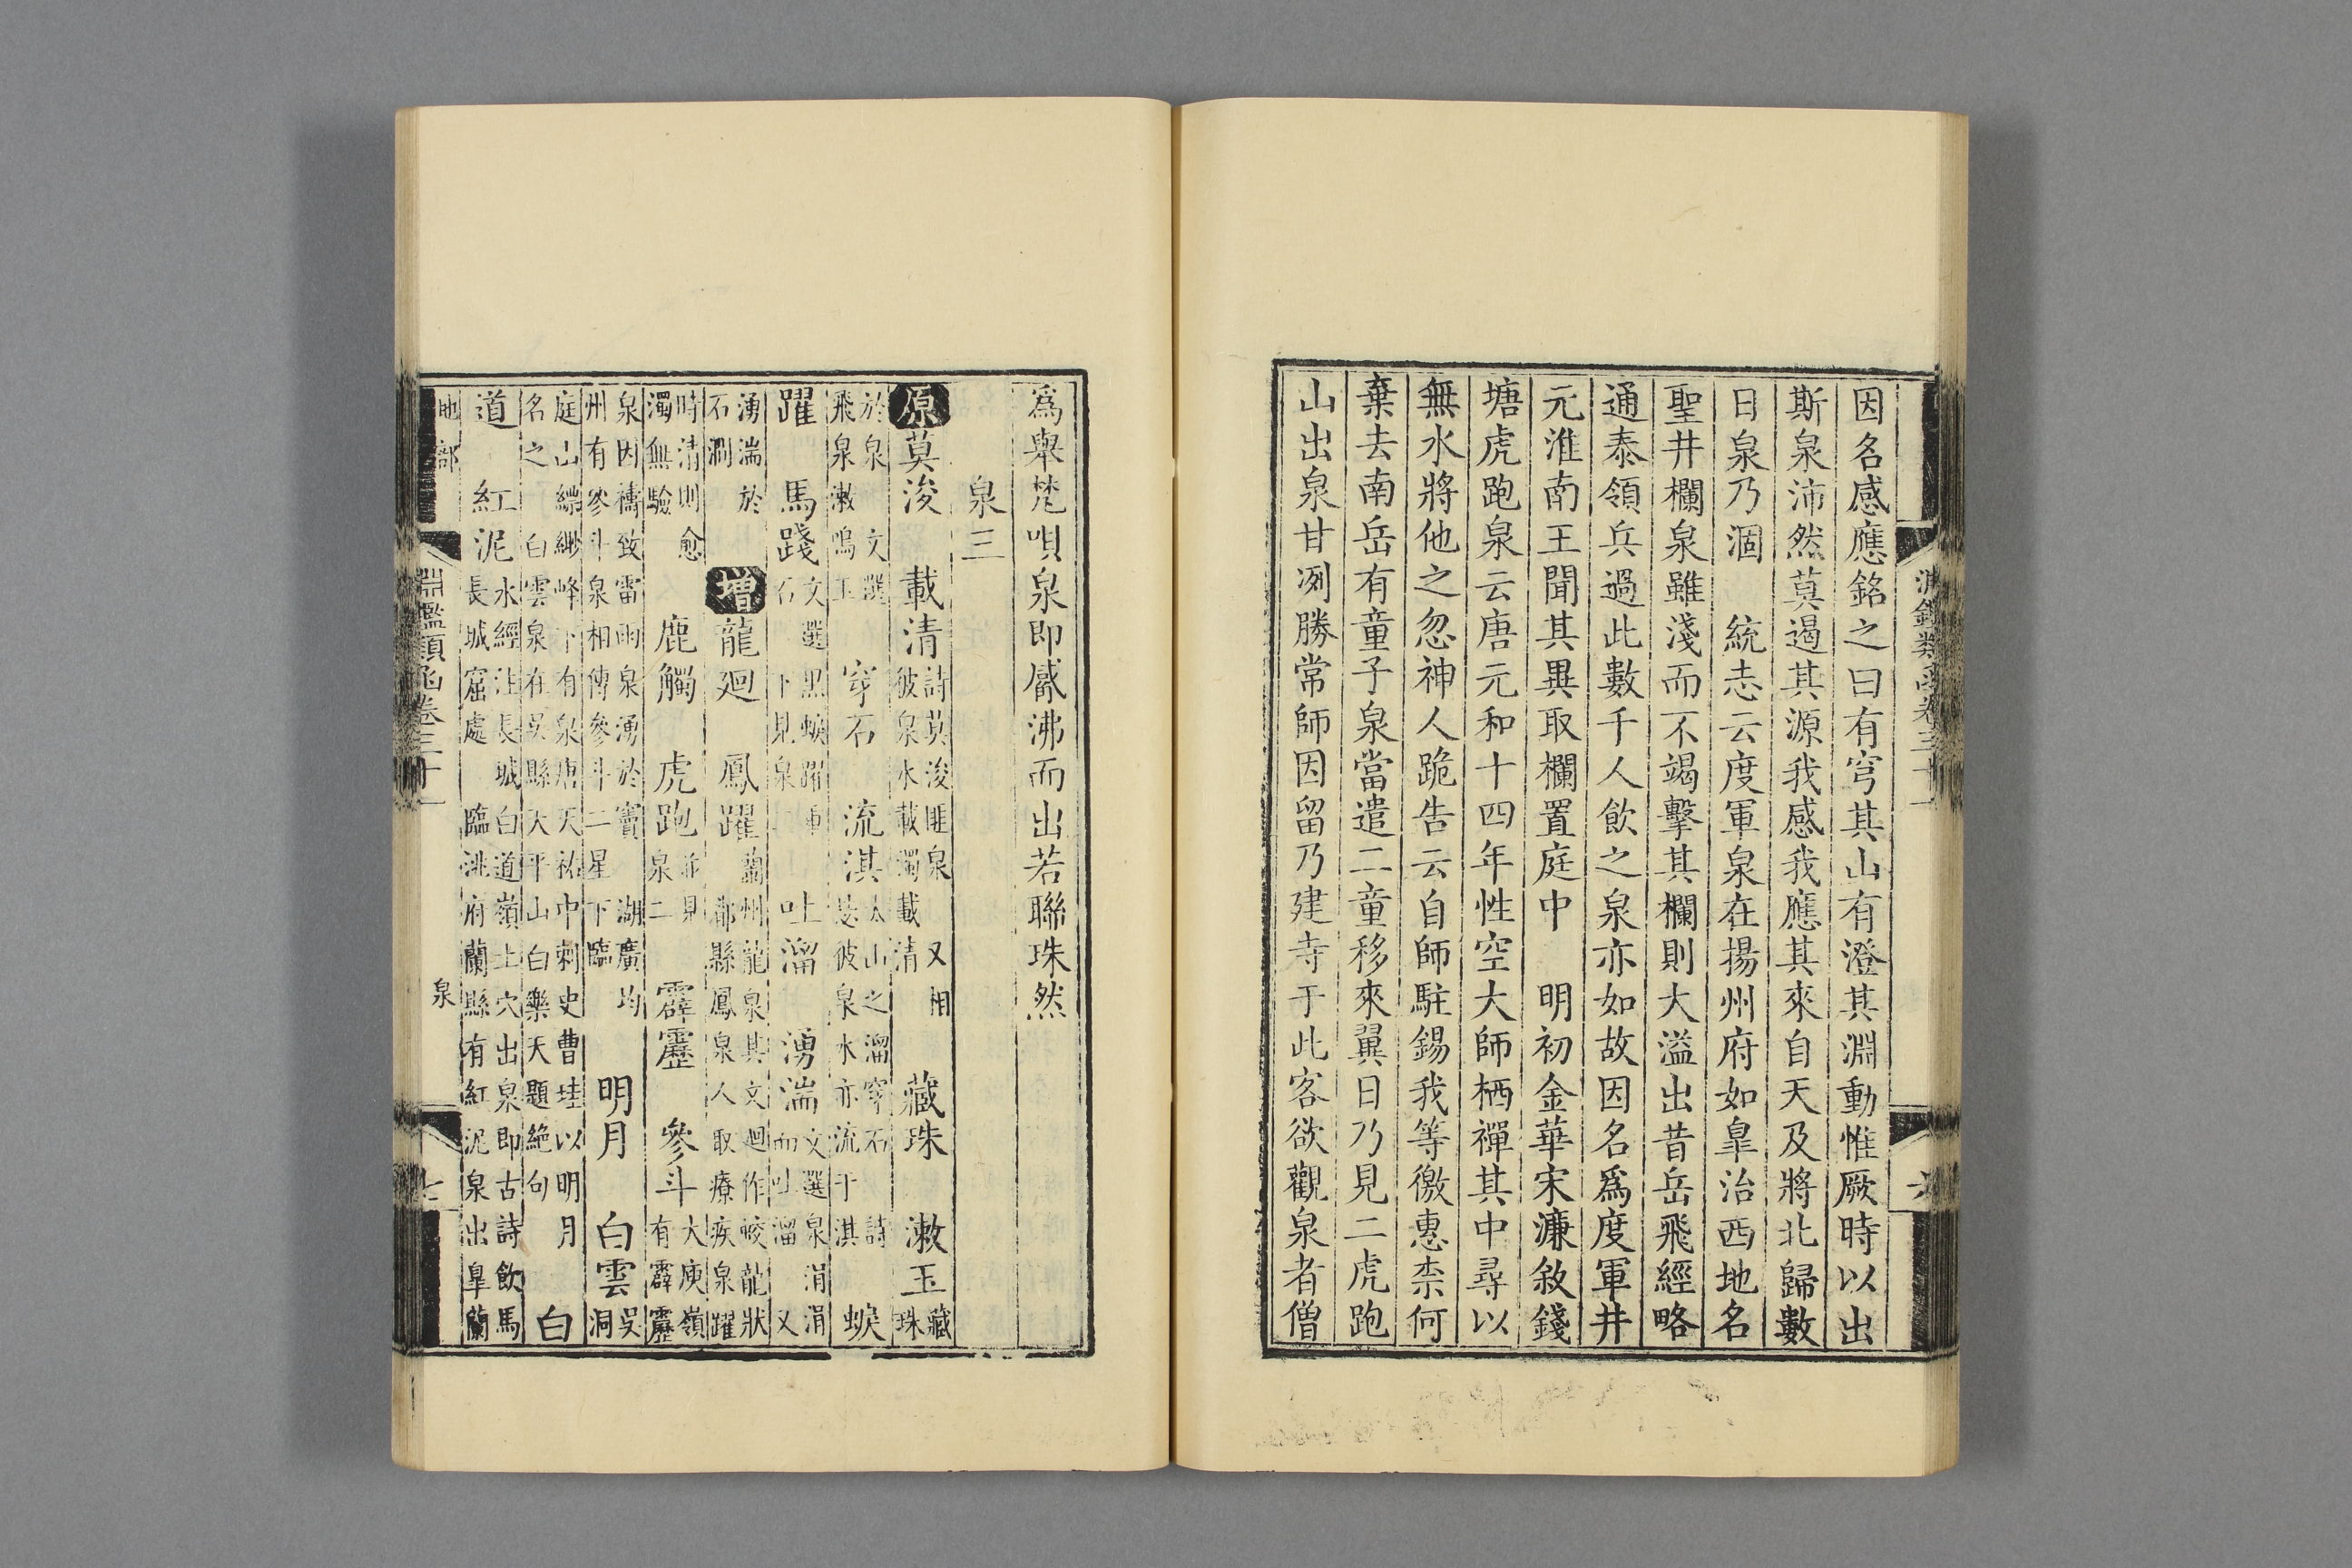 因名感應銘之曰有穹其山有澄其淵動惟厥時以出
斯泉沛然莫遏其源我感我應其來自天及將北歸數
日泉乃涸　統志云度軍泉在揚州府如臯治西地名
聖井欄泉雖淺而不竭擊其欄則大溢出昔岳飛經略
通泰領兵過此數千人飲之泉亦如故因名爲度軍井
元淮南王聞其異取欄置庭中　明初金華宋濂敘錢
塘虎跑泉云唐元和十四年性空大師栖禪其中尋以
無水將他之忽神人跪告云自師駐錫我等徼惠柰何
棄去南岳有童子泉當遣二童移來翼日乃見二虎跑
山出泉甘冽勝常師因留乃建寺于此客欲觀泉者僧
爲舉梵唄泉即觱沸而出若聯珠然
泉三
原莫浚　載清詩莫浚匪泉　又相彼泉水載濁載清　藏珠　漱玉藏珠
於泉　文選飛泉漱鳴玉　穿石太山之溜穿石　流淇詩毖彼泉水亦流于淇　蜧
躍　馬踐文選黑蜧躍重石　下見泉　吐溜　湧湍文選泉涓涓而吐溜　又
湧湍於石澗　增龍廻　鳳躍蘭州龍泉其文廻作蛟龍狀　鄠縣鳳泉人取療疾泉躍
時清則愈濁無驗　鹿觸　虎跑並見泉二　霹靂　參斗大庾嶺有霹靂
泉因禱致雷雨泉湧於竇　湖廣均州有參斗泉相傳參斗二星下臨　明月　白雲吳洞
庭山縹緲峰下有泉唐天祐中刺史曹珪以明月名之　白雲泉在吳縣大平山白樂天題絶句　白
道　紅泥水經注長城白道嶺土穴出泉即古詩飲馬長城窟處　臨洮府蘭縣有紅泥泉出臯蘭
地部
淵鑑類函卷三十一
泉
七